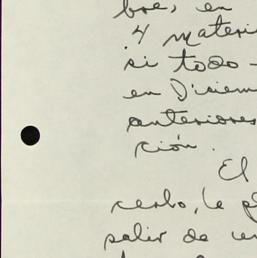 bre, en
y materi
si todo -
en Diciem
anteriores
ción.
El
cerlo, le p
salir de un